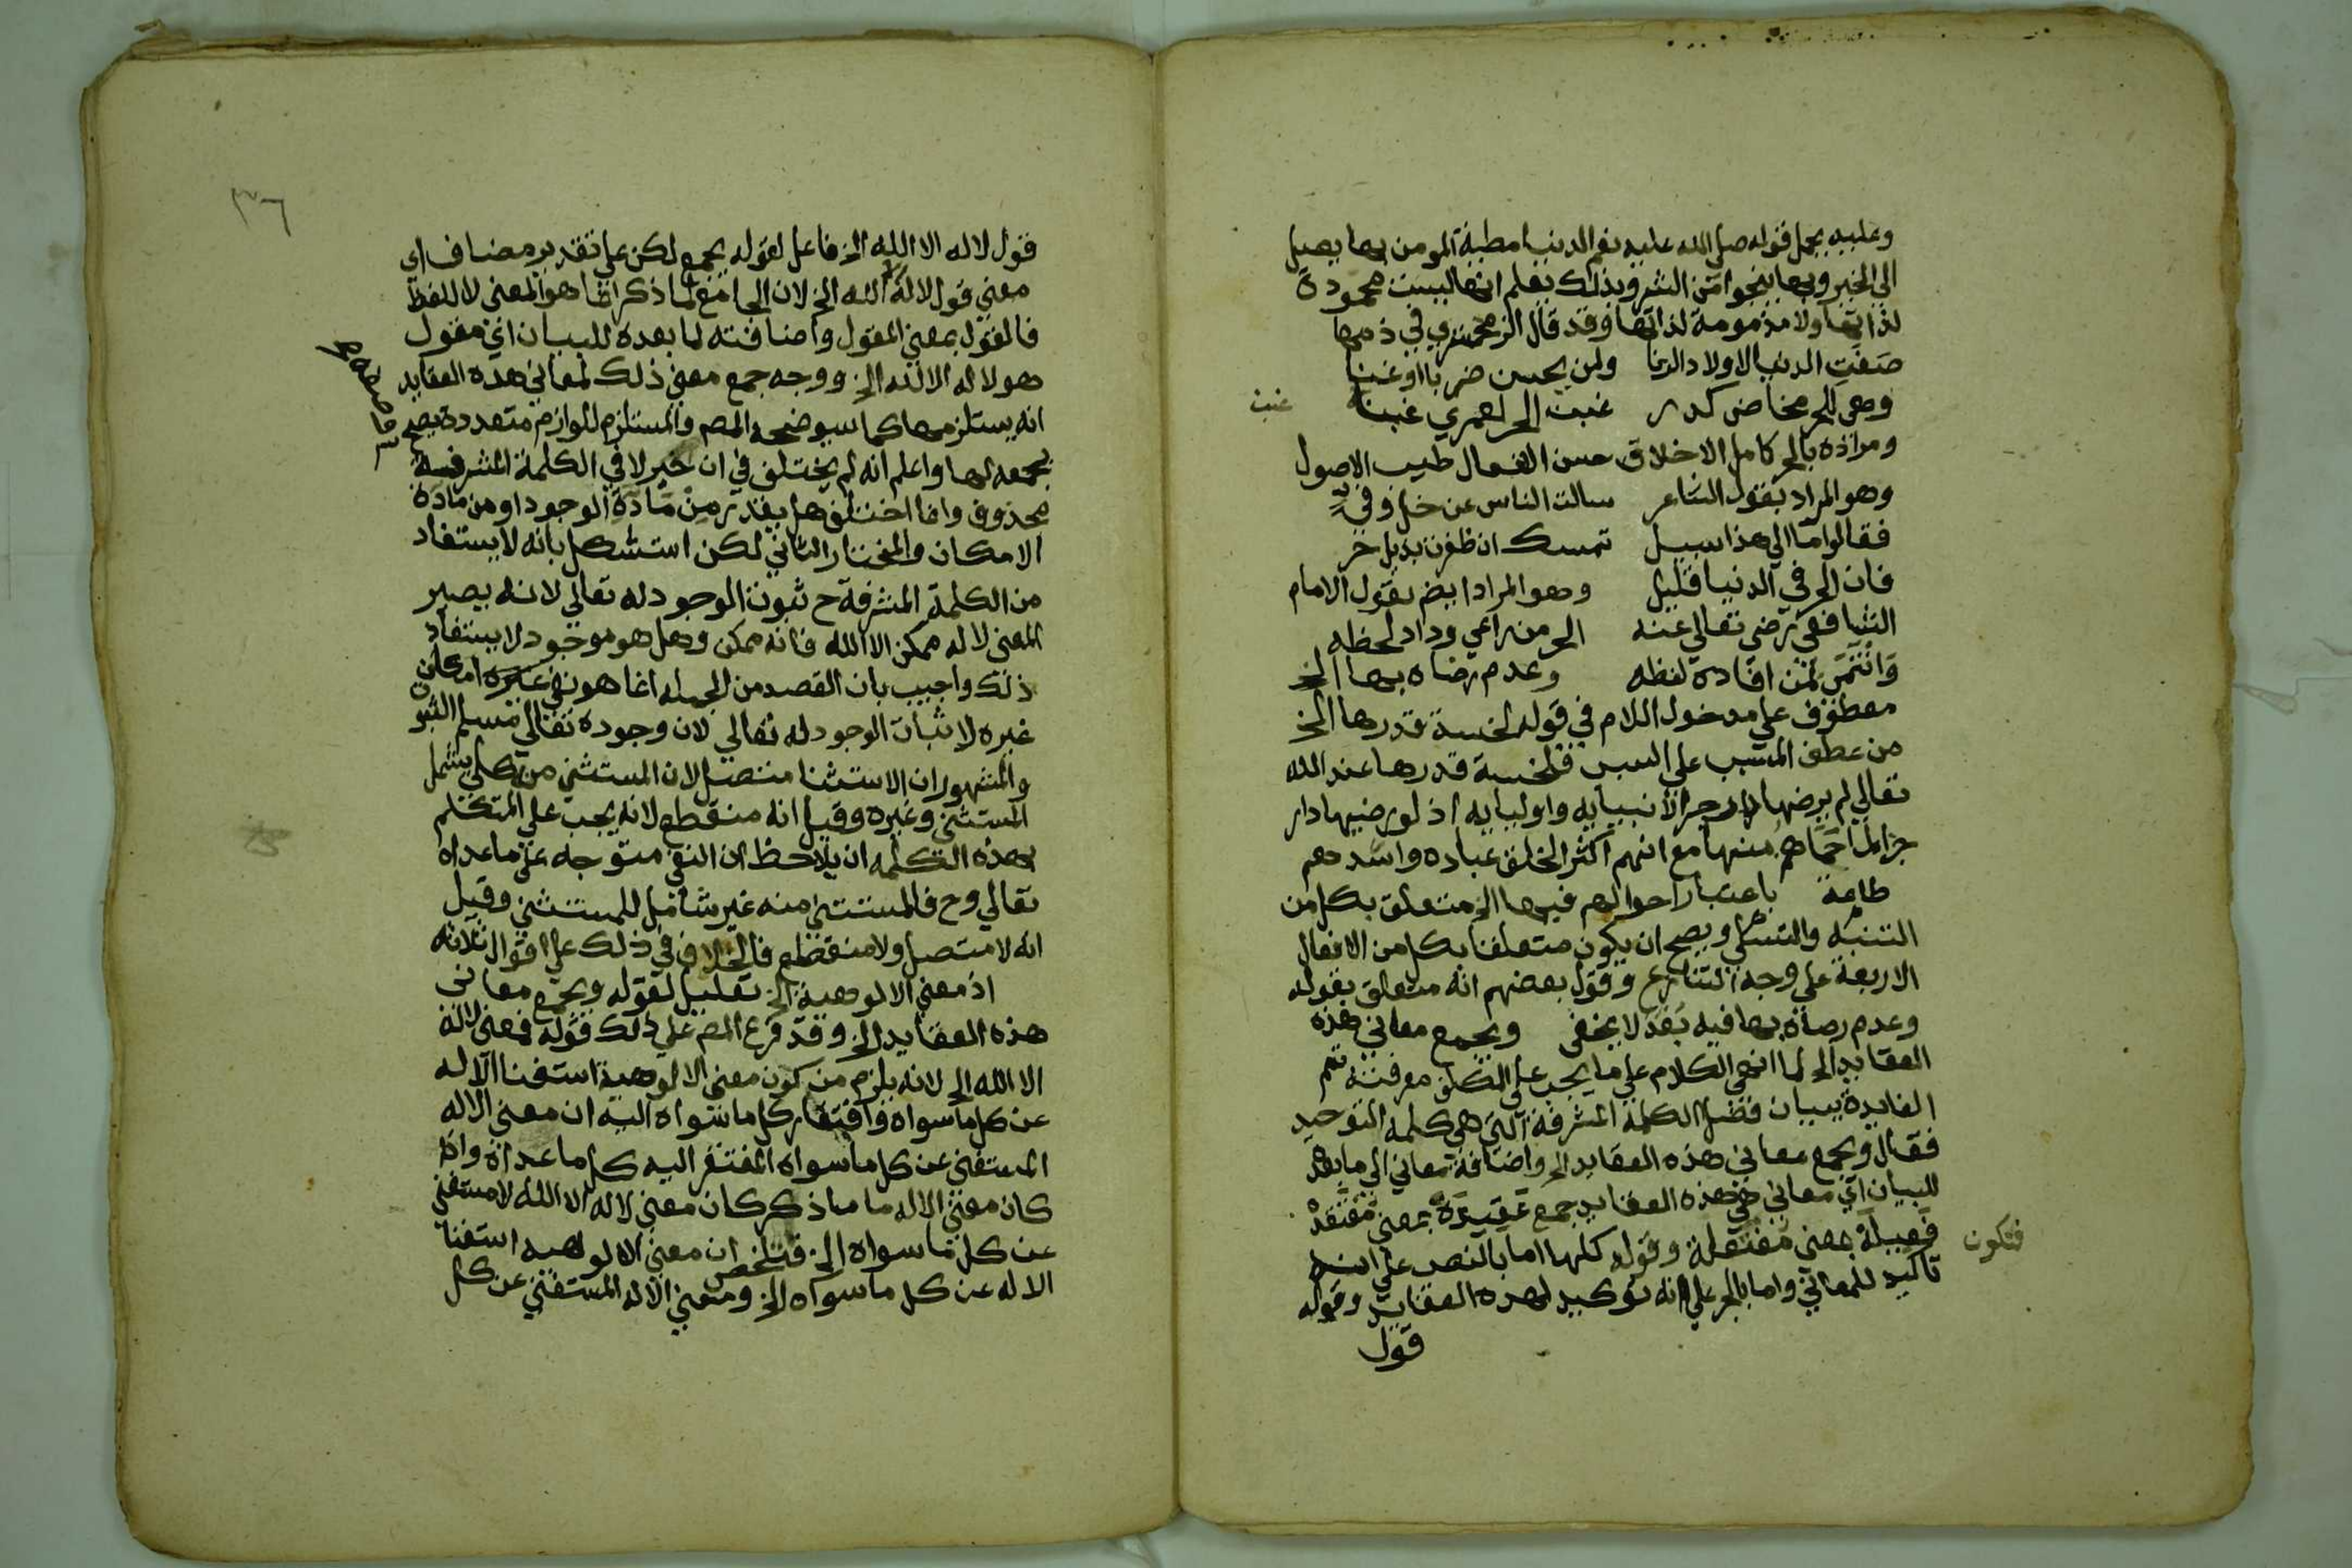 وعليه يحمل قوله صلى الله عليه نعم الدنيا مطية المومن بها يصل
الى الخير وبها ينجوا من الشر وبذلك يعلم انها ليست محمودة
لذاتها ولا مذمومة لذاتها وقد قال الزمخشري في ذمها
صفت الدنيا لاولاد الزنا ولمن يحسن ضربا او غنا
وهي للحر مخاض كدر غبن الحر لعمري غبنا
غبن
ومراده بالحر كامل الاخلاق حسن الفعال طيب الاصول
وهو المراد بقول الشاعر سالت الناس عن خل وفي
فقالوا ما الي هذا سبيل تمسك ان ظفرت بذيل حر
فان الحر في الدنيا قليل وهو المراد ايضم بقول الامام
الشافعي رضي تعالي عنه الحر من راعي وداد لحظه
وانتمي لمن افاده لفظه وعدم رضاه بها الخ
معطوف علي مدخول اللام في قوله لخسة قدرها الخ
من عطف المسبب علي السبب فلخسة قدرها عند الله
تعالي لم يرضها دار جزا لانبيايه واوليايه اذ لو رضيها دار
جزا لما احماهم منها مع انهم اكثر الخلق عباده واشدهم
طاعة باعتبار احوالهم فيها الخ متعلق بكل من
التنبه والتسلي ويصح ان يكون متعلقا بكل من الافعال
الاربعة علي وجه التنازع وقول بعضهم انه متعلق بقوله
وعدم رضاه بها فيه بعد لا يخفي ويجمع معاني هذه
العقايد الخ لما انهي الكلام علي ما يجب علي المكلف معرفته تمم
الفايدة ببيان فضل الكلمة المشرفة التي هي كلمة التوحيد
فقال ويجمع معاني هذه العقايد الخ واضافة معاني الي ما بعده
للبيان اي معاني هي هذه العقايد جمع عقيدة بمعني معتقدة
فتكون
فعيلة بمعني مفتعلة وقوله كلها اما بالنصب علي انه
تاكيد للمعاني واما بالجر علي انه توكيد لهذه العقايد وقوله
قول
٣٦
قول لا اله الا الله الخ فاعل لقوله يجمع لكن علي تقدير مضاف اي
معني قول لا اله الا الله الخ لان الجامع لما ذكر انما هو المعني لا اللفظ
فالقول بمعني المقول واضافته لما بعده للبيان اي مقول
هو لا اله الا الله الخ ووجه جمع معني ذلك لمعاني هذه العقايد
انه يستلزمها كما سيوضحه المص والمستلزم للوازم متعددة يصح
يجمعه لها واعلم انه لم يختلف في ان خبر لا في الكلمة المشرفة
محذوف وانما اختلف هل يقدر من مادة الوجود او من مادة
الامكان والمختار الثاني لكن استشكل بانه لا يستفاد
من الكلمة المشرفة ح ثبوت الوجود له تعالي لانه يصير
المعني لا اله ممكن الا الله فانه ممكن وهل هو موجود لا يستفاد
ذلك واجيب بان القصد من الجملة انما هو نفي امكان
غيره لا اثبات الوجود له تعالي لان وجوده تعالي مسلم الثبوت
والمشهور ان الاستثنا متصل لان المستثني منه كلي يشمل
المستثني وغيره وقيل انه منقطع لانه يجب علي المتكلم
بهذه الكلمه ان يلاحظ ان النفي متوجه علي ما عداه
تعالي وح فالمستثني منه غير شامل للمستثني وقيل
انه لا متصل ولا منقطع فالخلاف في ذلك علي اقوال ثلاثة
اذ معني الالوهية الخ تعليل لقوله ويجمع معاني
هذه العقايد الخ وقد فرع المص علي ذلك قوله فمعني لا اله
الا الله الخ لانه يلزم من كون معني الالوهية استغنا الاله
عن كل ما سواه وافتقار كل ما سواه اليه ان معني الاله
المستغني عن كل ما سواه المفتقر اليه كل ما عداه واذا
كان معني الاله ما ذكر كان معني لا اله الا الله لا مستغني
عن كل ما سواه الخ فتلخص ان معني الالوهيه استغنا
الاله عن كل ما سواه الخ ومعني الاله المستغني عن كل